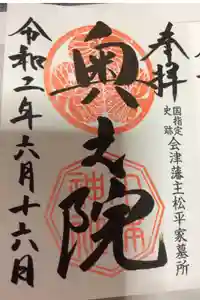 奉拝
国指定
史跡
会津藩主松平家墓所
奥之院
令和二年六月十六日